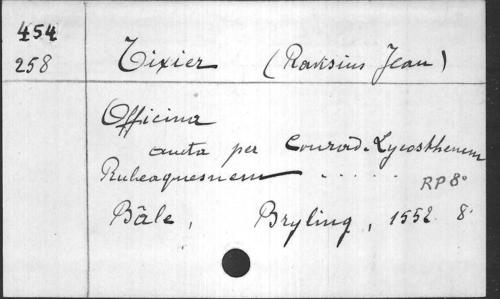 454
258 Tixier (Ravisius Jean)
Officina
aucta per Conrard. Lycosthenem
Rubeaquesnem . . . . . .
RP 8°
Bâle, Bryling, 1552 8°